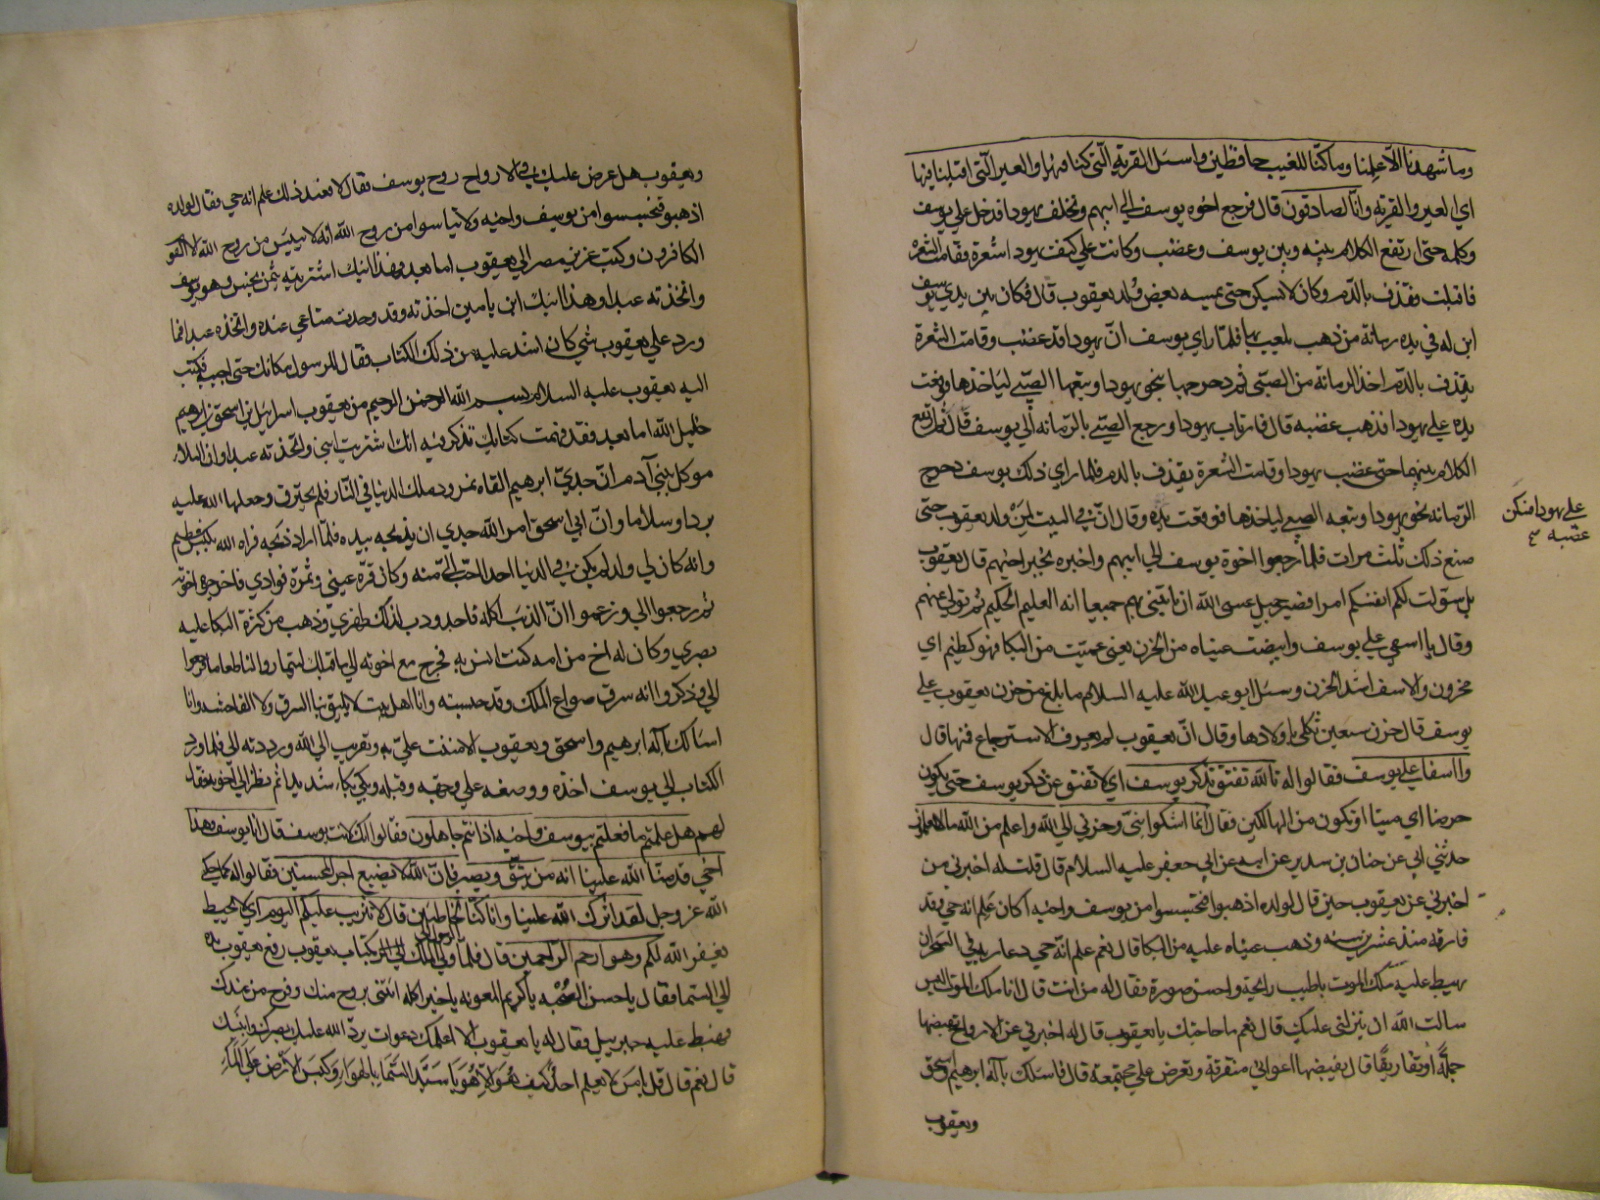 وما شهدنا الا بما علمنا وما كنا للغيب حافظين واسئل القرية التي كنا فيها والعير التي اقبلنا فيها
اي العير والقرية وانا لصادقون قال فرجع اخوه يوسف الي ابيهم وتخلف يهودا فدخل علي يوسف
وكلمه حتي ارتفع الكلام بينه وبين يوسف وغضب وكانت علي كتف يهودا شعرة فقامت الشعرة
فاقبلت تقذف بالدم وكان لا يسكن حتي يمسه بعض ولد يعقوب قال فكان بين يدي يوسف
ابن له في يده رمانة من ذهب يلعب بها فلما راي يوسف ان يهودا قد غضب وقامت الشعرة
يقذف بالدم اخذ الرمانة من الصبي ثم دحرجها نحو يهودا وتبعها الصبي لياخذها فوقعت
يده علي يهودا فذهب غضبه قال فارتاب يهودا ورجع الصبي بالرمانه الي يوسف قال ثم ارتفع
الكلام بينهما حتي غضب يهودا وقامت الشعرة يقذف بالدم فلما راي ذلك يوسف دحرج
الرمانه نحو يهودا وتبعه الصبي لياخذها فوقعت يده وقال ان في البيت لمن ولد يعقوب حتي
علي يهودا فسكن
غضبه
صنع ذلك ثلث مرات فلما رجعوا اخوة يوسف الي ابيهم واخبره بخبر اخيهم قال يعقوب
بل سولت لكم انفسكم امرا فصبر جميل عسي الله ان ياتيني بهم جميعا انه العليم الحكيم ثم تولي عنهم
وقال يا اسفي علي يوسف وابيضت عيناه من الحزن يعني عميت من البكا فهو كظيم اي
محزون والاسف اشد الحزن وسئل ابو عبد الله عليه السلام ما بلغ من حزن يعقوب علي
يوسف قال حزن سبعين ثكلي باولادها وقال ان يعقوب لم يعرف الاسترجاع فمنها قال
وااسفا علي يوسف فقالوا له تالله تفتؤ تذكر يوسف اي لا تفتؤ عن ذكر يوسف حتي يكون
حرضا اي ميتا او تكون من الهالكين فقال انما اشكوا بثي وحزني الي الله واعلم من الله ما لا تعلمون
حدثني ابي عن حنان بن سدير عن ابيه عن ابي جعفر عليه السلام قال قلت له اخبرني من
اخبرني عن يعقوب حين قال لولده اذهبوا فتحسسوا من يوسف واخيه اكان علم انه حي وقد
فارقه منذ عشرين سنه وذهب عيناه عليه من البكا قال نعم علم انه حي دعا ربه في السحر ان
يهبط عليه ملك الموت باطيب رائحة واحسن صورة فقال له من انت قال انا ملك الموت اليس
سالت الله ان ينزلني عليك قال نعم ما حاجتك يا يعقوب قال له اخبرني عن الارواح تقبضها
جملة او تفاريقا قال يقبضها اعواني متفرقة وتعرض علي مجتمعة قال فاسئلك باله ابرهيم واسحق
ويعقوب
ويعقوب هل عرض عليك في الارواح روح يوسف فقال لا فعند ذلك علم انه حي فقال لولده
اذهبوا فتحسسوا من يوسف واخيه ولا تياسوا من روح الله انه لا ييئس من روح الله الا القو
الكافرون وكتب عزيز مصر الي يعقوب اما بعد فهذا ابنك اشتريته بثمن بخس وهو يوسف
واتخذته عبدا وهذا ابنك ابن يامين اخذته وقد وجدت متاعي عنده واتخذه عبدا فما
ورد علي يعقوب شي كان اشد عليه من ذلك الكتاب فقال للرسول مكانك حتي اجيبه فكتب
اليه يعقوب عليه السلام بسم الله الرحمن الرحيم من يعقوب اسرائيل بن اسحق بن ابرهيم
خليل الله اما بعد فقد فهمت كتابك تذكر فيه انك اشتريت ابني واتخذته عبدا وان البلاء
موكل ببني آدم ان جدي ابرهيم القاه نمرود ملك الدنيا في النار فلم يحترق وجعلها الله عليه
بردا وسلاما وان ابي اسحق امر الله جدي ان يذبحه بيده فلما اراد ذبحه فداه الله بكبش عظيم
وانه كان لي ولد لم يكن في الدنيا احد احب الي منه وكان قرة عيني وثمرة فوادي فاخرجوه اخوته
ثم رجعوا الي وزعموا ان الذئب اكله فاحدودب لذلك ظهري وذهب من كثرة البكا عليه
بصري وكان له اخ من امه كنت آنس به فخرج مع اخوته الي ما قبلك ليمتاروا لنا طعاما فرجعوا
الي وذكروا انه سرق صواع الملك وقد حبسته وانا اهل بيت لا يليق بنا السرق ولا الفاحشه وانا
اسالك باله ابرهيم واسحق ويعقوب الا مننت علي به وتقربت الي الله ورددته الي فلما ورد
الكتاب الي يوسف اخذه ووضعه علي وجهه وقبله وبكي بكاء شديدا ثم نظر الي اخوته فقال
لهم هل علمتم ما فعلتم بيوسف واخيه اذ انتم جاهلون فقالوا انك لانت يوسف قال انا يوسف وهذا
اخي قد من الله علينا انه من يتق ويصبر فان الله لا يضيع اجر المحسنين فقالوا له كما حكي
الله عز وجل لقد اثرك الله علينا وان كنا لخاطئين قال لا تثريب عليكم اليوم اي لا تخليط
يغفر الله لكم وهو ارحم الراحمين قال فلما ولي الرسول الي الملك بكتاب يعقوب رفع يعقوب يده
الي السما فقال يا حسن الصحبه يا كريم المعونه يا خير اله ائتني بروح منك وفرج من عندك
فهبط عليه جبرئيل فقال له يا يعقوب الا اعلمك دعوات يرد الله عليك بصرك وابنيك
قال نعم قال قل يا من لا يعلم احد كيف هو الا هو يا من سد السما بالهواء وكبس الارض علي الماء